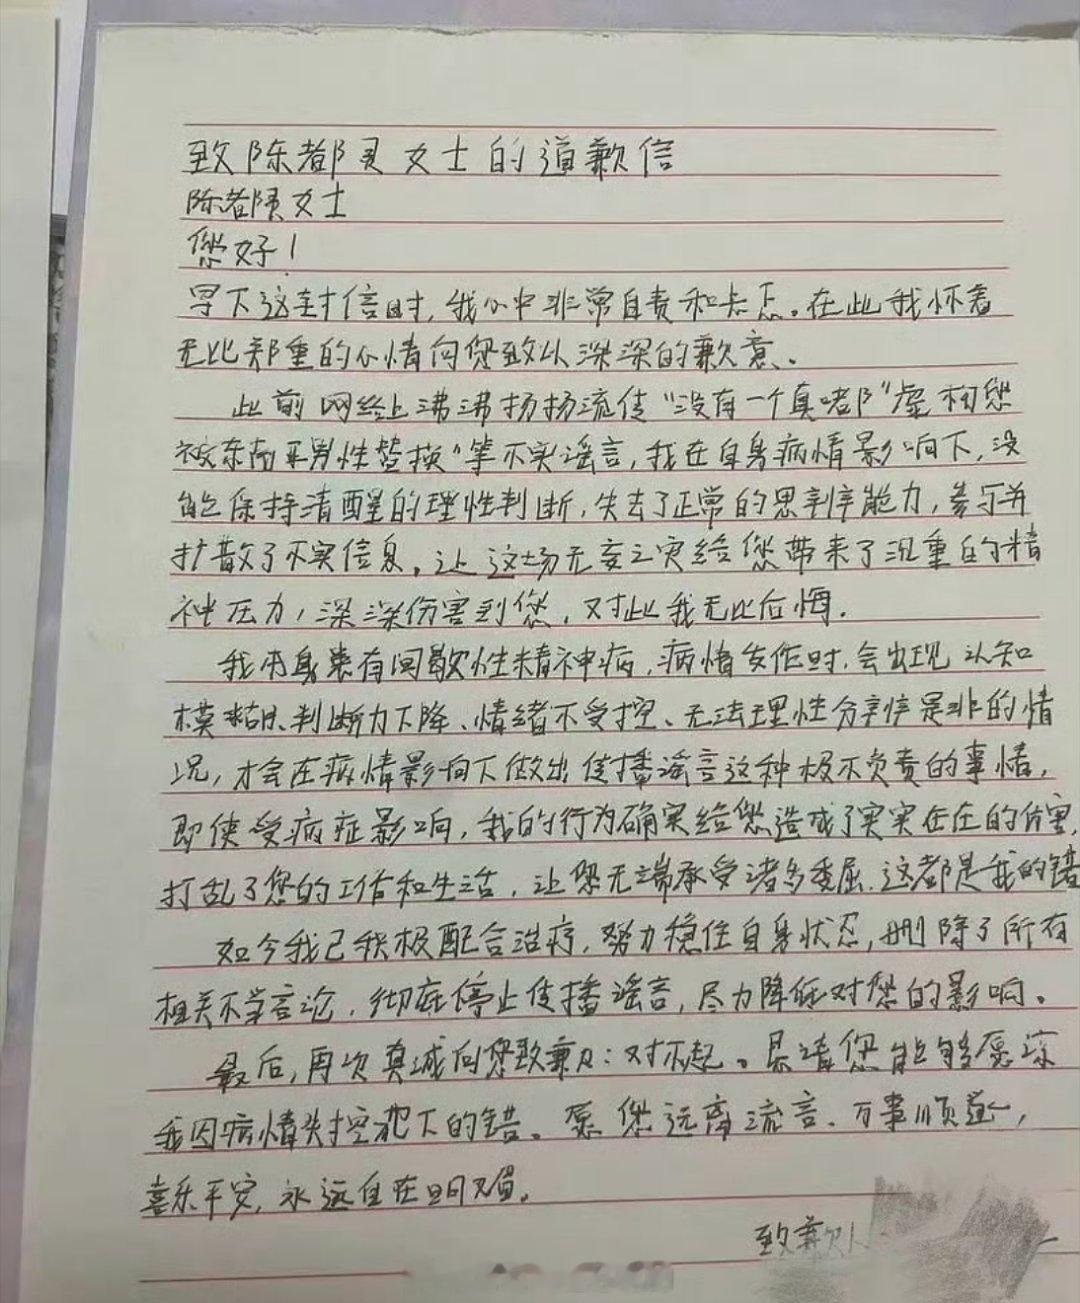 致陈都灵女士的道歉信
陈都灵女士
您好！
写下这封信时，我心中非常自责和忐忑。在此我怀着
无比郑重的心情向您致以深深的歉意、
此前网络上沸沸扬扬流传“没有一个真啫阝”虚构您
被东南亚男性替换“等不实谣言，我在自身病情影响下，没
能保持清醒的理性判断，失去了正常的思辨能力，参与并
扩散了不实信息。让这场无妄之灾给您带来了沉重的精
神压力，深深伤害到您，对此我无比后悔.
我本身患有间歇性精神病，病情发作时，会出现认知
模糊、判断力下降、情绪不受控、无法理性分辨是非的情
况，才会在病情影响下做出传播谣言这种极不负责的事情，
即使受病症影响，我的行为确实给您造成了实实在在的伤害，
打乱了您的工作和生活，让您无端承受诸多委屈.这都是我的错
如今我已积极配合治疗，努力稳住自身状态，删除了所有
相关不当言论，彻底停止传播谣言，尽力降低对您的影响。
最后，再次真诚向您致歉：对不起。恳请您能够原谅
我因病情失控犯下的错。愿您远离流言、万事顺遂，
喜乐平安，永远自在明媚。
致歉人